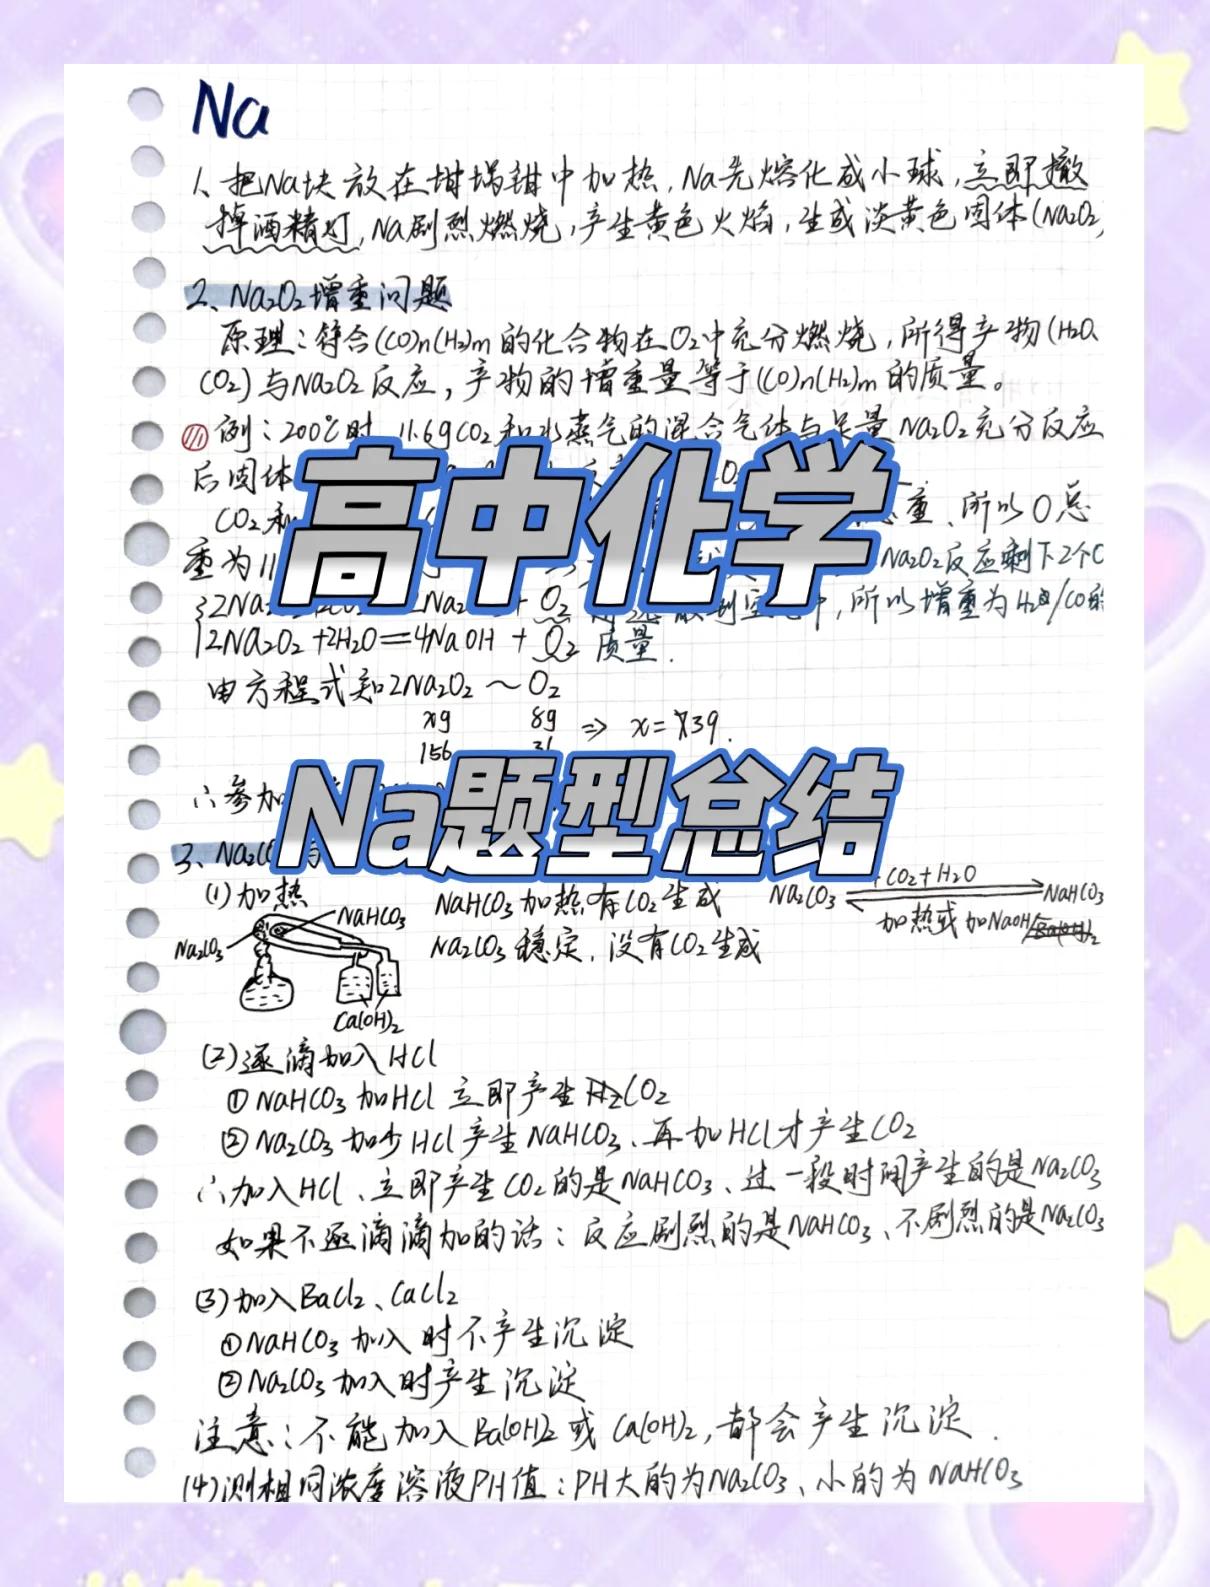 Na
1、把Na块放在坩埚钳中加热,Na先熔化成小球,立即撤
掉酒精灯,Na剧烈燃烧,产生黄色火焰,生成淡黄色固体(Na2O2
2、Na2O2增重问题
原理:符合(CO)n(H2)m的化合物在O2中充分燃烧,所得产物(H2O、
CO2)与Na2O2反应,产物的增重量等于(CO)n(H2)m的质量。
例:200℃时,11.6gCO2和水蒸气的混合气体与足量Na2O2充分反应
后固体
高中化学
CO2和 总重、所以O总
重为11 Na2O2反应剩下2个O
2Na 2Na2 + O2 散到空气中,所以增重为H2/CO的
2Na2O2+2H2O=4NaOH+O2 质量.
由方程式知2Na2O2~O2
xg 8g ⇒ x=39.
156
∴参加
Na题型总结
3、Na2CO
(1)加热 NaHCO3加热有CO2生成 Na2CO3 +CO2+H2O NaHCO3
NaHCO3 Na2CO3稳定,没有CO2生成 加热或加NaOH
Na2CO3
Ca(OH)2
(2)逐滴加入HCl
①NaHCO3加HCl立即产生CO2
②Na2CO3加少HCl产生NaHCO3、再加HCl才产生CO2
∴加入HCl、立即产生CO2的是NaHCO3、过一段时间产生的是Na2CO3
如果不逐滴滴加的话:反应剧烈的是NaHCO3、不剧烈的是Na2CO3
(3)加入BaCl2、CaCl2
①NaHCO3加入时不产生沉淀
②Na2CO3加入时产生沉淀
注意:不能加入Ba(OH)2或Ca(OH)2,都会产生沉淀.
(4)测相同浓度溶液PH值:PH大的为Na2CO3、小的为NaHCO3